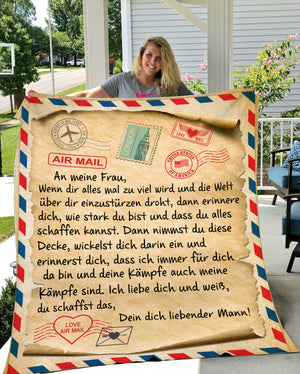 LOVE
AIR MAIL
UNITED STATES
OF AMERICA
An meine Frau,
Wenn dir alles mal zu viel wird und die Welt
über dir einzustürzen droht, dann erinnere
dich, wie stark du bist und dass du alles
schaffen kannst. Dann nimmst du diese
Decke, wickelst dich darin ein und
erinnerst dich, dass ich immer für dich
da bin und deine Kämpfe auch meine
Kämpfe sind. Ich liebe dich und weiß,
du schaffst das,
Dein dich liebender Mann!
LOVE
AIR MAIL